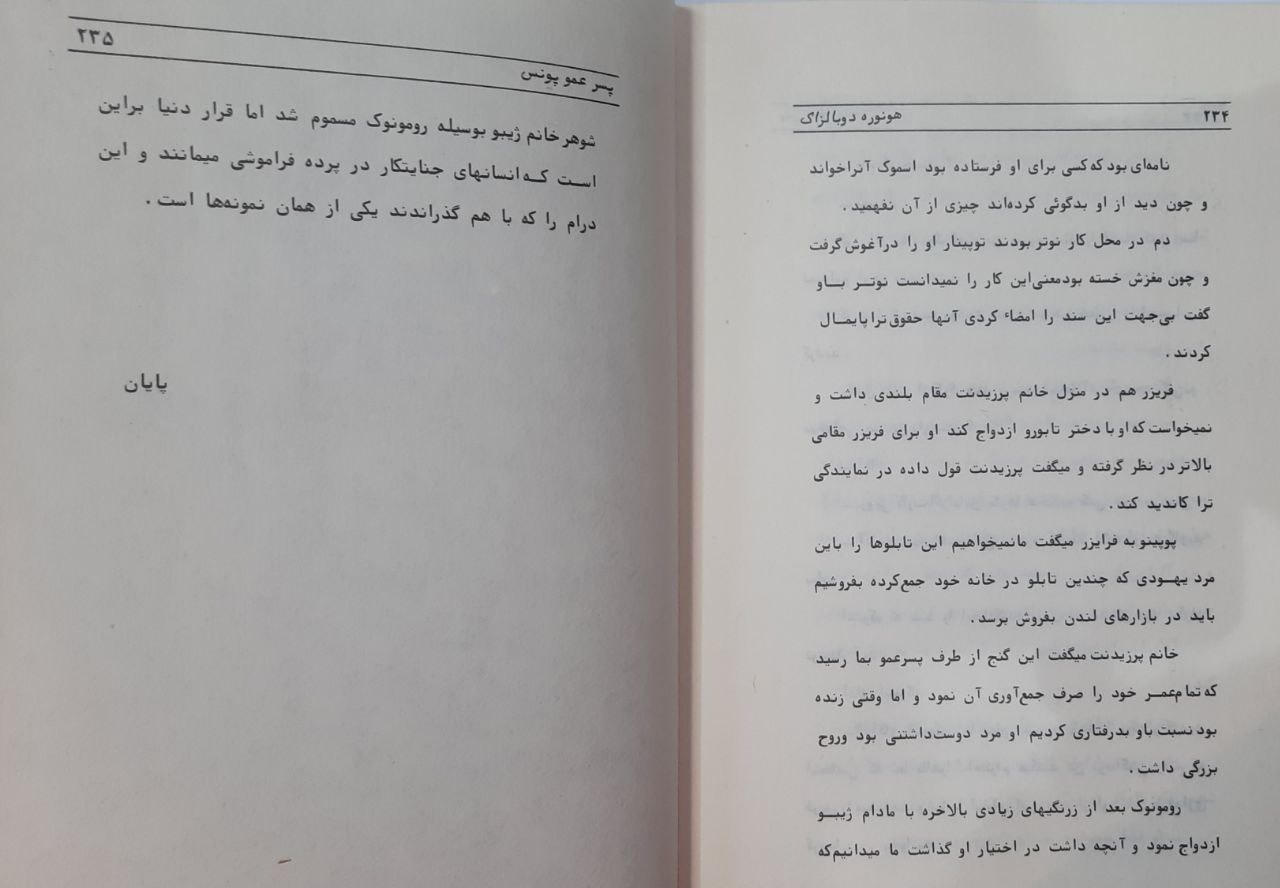 ۲۳۴ هونوره دوبالزاک
نامه‌ای بود که کسی برای او فرستاده بود اسموک آنراخواند
و چون دید از او بدگوئی کرده‌اند چیزی از آن نفهمید .
دم در محل کار نوتر بودند توپینار او را درآغوش گرفت
و چون مغزش خسته بودمعنی‌این کار را نمیدانست نوتر باو
گفت بی‌جهت این سند را امضاٴ کردی آنها حقوق‌تراپایمال
کردند .
فریزر هم در منزل خانم پرزیدنت مقام بلندی داشت و
نمیخواست که او با دختر تابورو ازدواج کند او برای فریزر مقامی
بالاتر در نظر گرفته و میگفت پرزیدنت قول داده در نمایندگی
ترا کاندید کند .
پوپینو به فرایزر میگفت مانمیخواهیم این تابلوها را باین
مرد یهودی که چندین تابلو در خانه خود جمع‌کرده بفروشیم
باید در بازارهای لندن بفروش برسد .
خانم پرزیدنت میگفت این گنج از طرف پسرعمو بما رسید
که تمام‌عمر خود را صرف جمع‌آوری آن نمود و اما وقتی زنده
بود نسبت باو بدرفتاری کردیم او مرد دوست‌داشتنی بود وروح
بزرگی داشت .
رومونوک بعد از زرنگیهای زیادی بالاخره با مادام ژیبو
ازدواج نمود و آنچه داشت در اختیار او گذاشت ما میدانیم‌که
پسر عمو پونس ۲۳۵
شوهر خانم ژیبو بوسیله رومونوک مسموم شد اما قرار دنیا براین
است که‌انسانهای جنایتکار در پرده فراموشی میمانند و این
درام را که با هم گذراندند یکی از همان نمونه‌ها است .
پایان